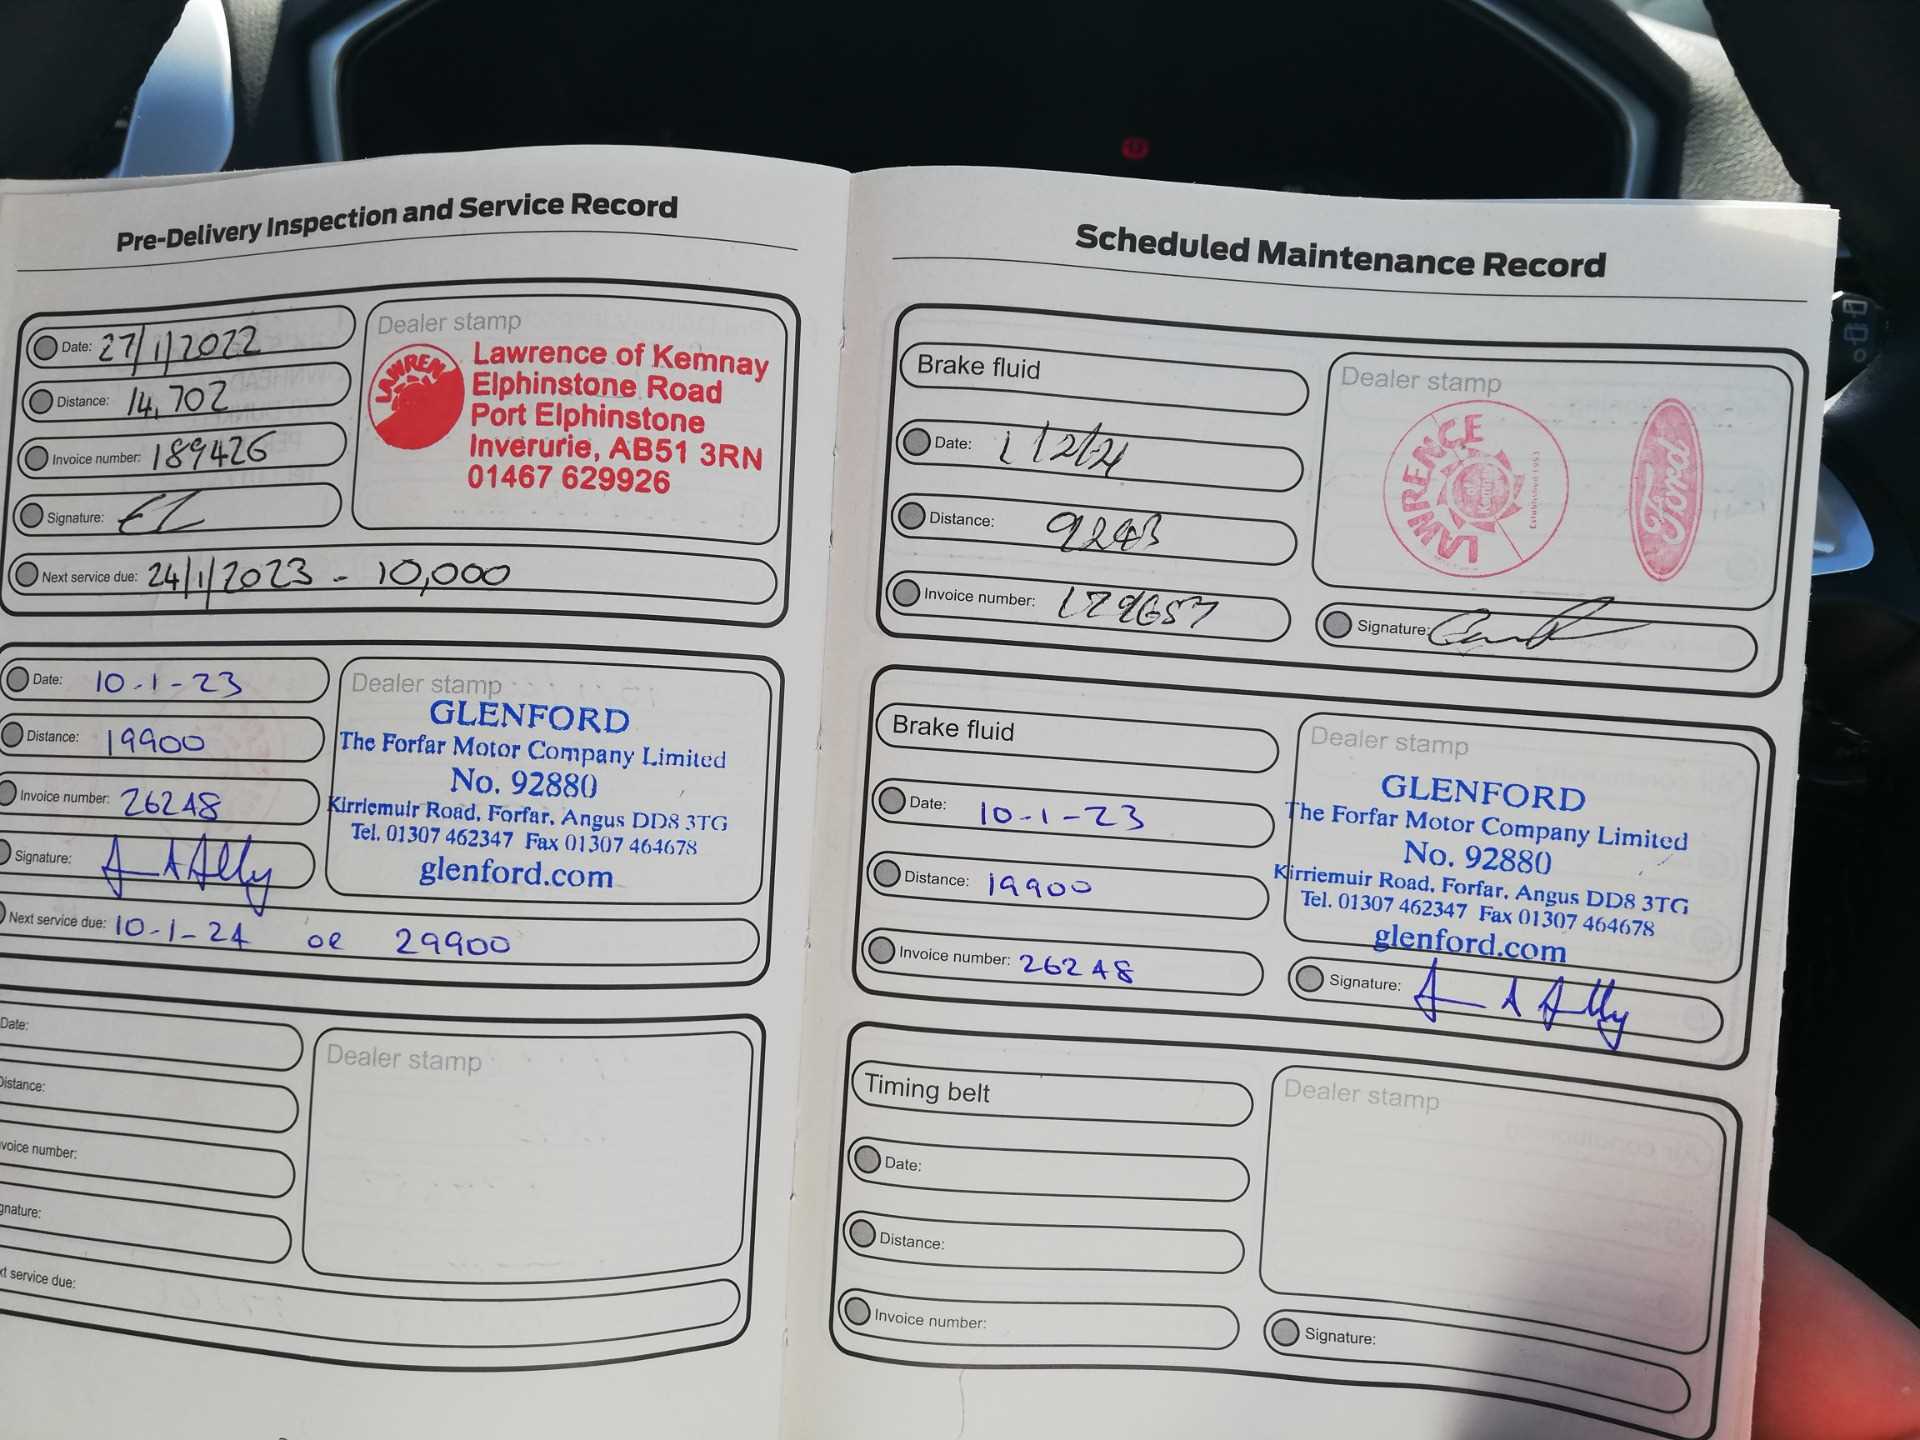 Pre-Delivery Inspection and Service Record
Date: 27/1/2022
Distance: 14,702
Invoice number: 189426
Signature:
Next service due: 24/1/2023 - 10,000
Dealer stamp
LAWREN
Lawrence of Kemnay
Elphinstone Road
Port Elphinstone
Inverurie, AB51 3RN
01467 629926
Date: 10-1-23
Distance: 19900
Invoice number: 26248
Signature:
Next service due: 10-1-24 or 29900
Dealer stamp
GLENFORD
The Forfar Motor Company Limited
No. 92880
Kirriemuir Road, Forfar, Angus DD8 3TG
Tel. 01307 462347 Fax 01307 464678
glenford.com
Date:
Distance:
voice number:
gnature:
xt service due:
Dealer stamp
Scheduled Maintenance Record
Brake fluid
Date: 1/2/21
Distance: 9243
Invoice number: 179657
Dealer stamp
LAWRENCE
of Kemnay
Established 1953
Ford
Signature:
Brake fluid
Date: 10-1-23
Distance: 19900
Invoice number: 26248
Dealer stamp
GLENFORD
The Forfar Motor Company Limited
No. 92880
Kirriemuir Road, Forfar, Angus DD8 3TG
Tel. 01307 462347 Fax 01307 464678
glenford.com
Signature:
Timing belt
Date:
Distance:
Invoice number:
Dealer stamp
Signature: